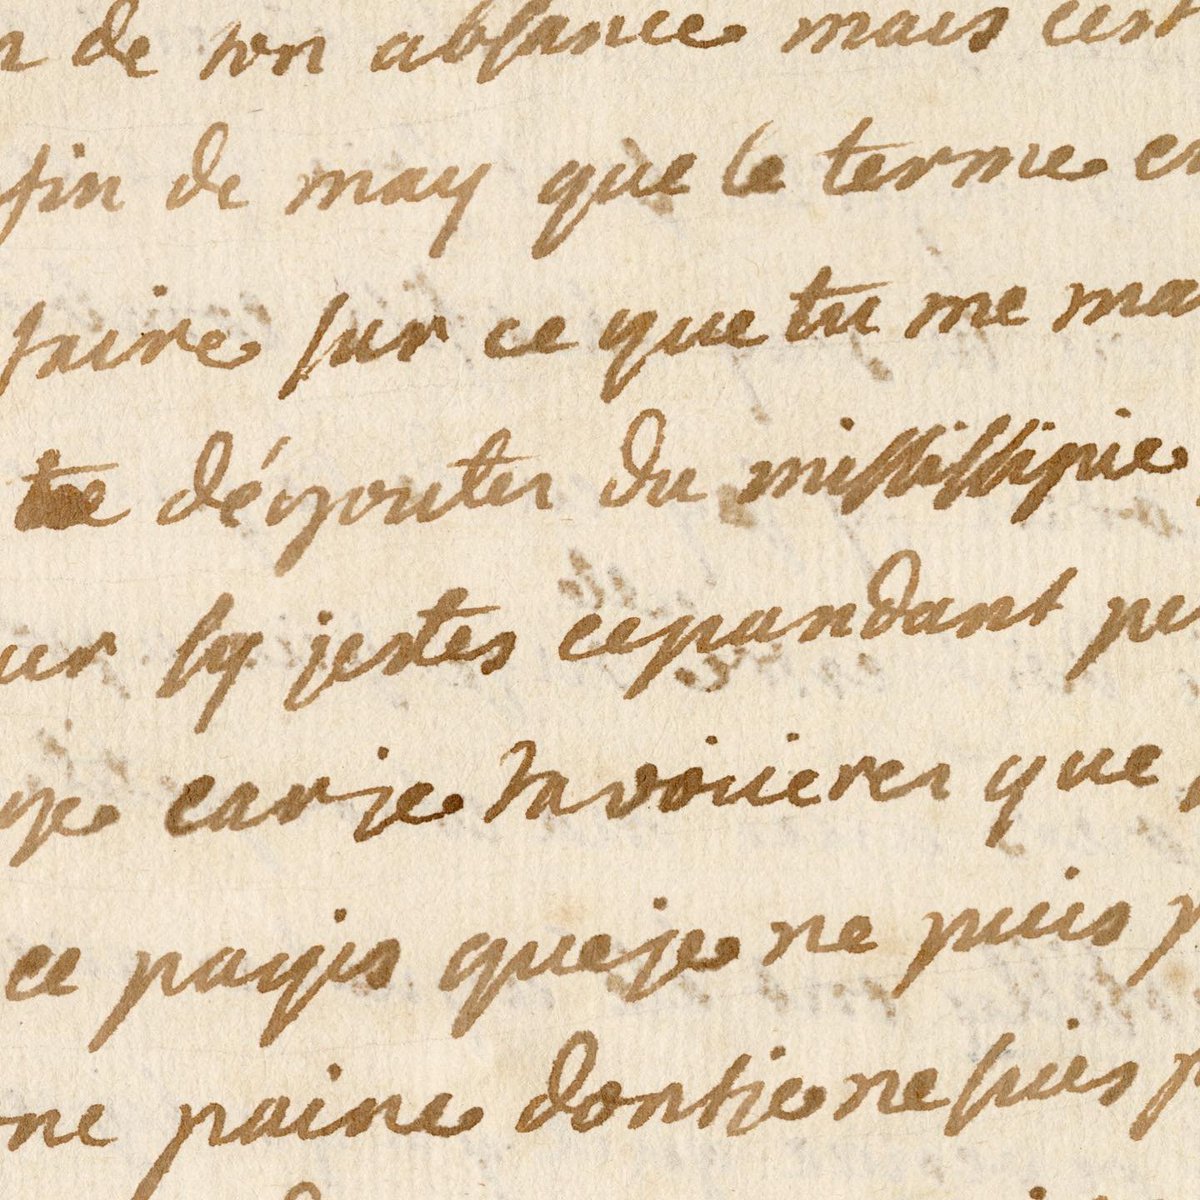 de son absance mais cest
fin de may que le terme en
faire sur ce que tu me ma
te dégouter du missisipie
sy jestes cepandant pe
car je tavoueres que
ce payis que je ne puis p
ne paine dont je ne suis p